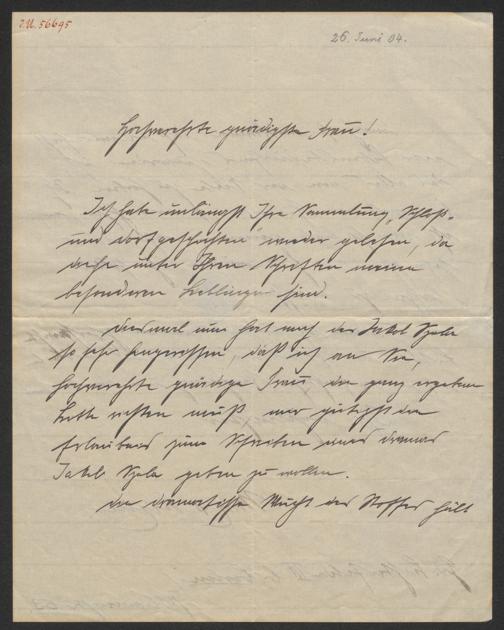 I.N. 56695
26. Juni 04.
Hochverehrte gnädigste Frau!
Ich habe unlängst Ihre Sammlung „Schloß-
und Dorfgeschichten“ wieder gelesen, da
diese unter Ihren Schriften meine
besonderen Lieblinge sind.
Diesmal nun hat mich der Jakob Szela
so sehr hingerissen, daß ich an Sie,
hochverehrte gnädige Frau die ganz ergebene
Bitte richten muß, mir gütigst die
Erlaubnis zum Schreiben eines Dramas
Jakob Szela geben zu wollen.
Die dramatische Wucht des Stoffes hält